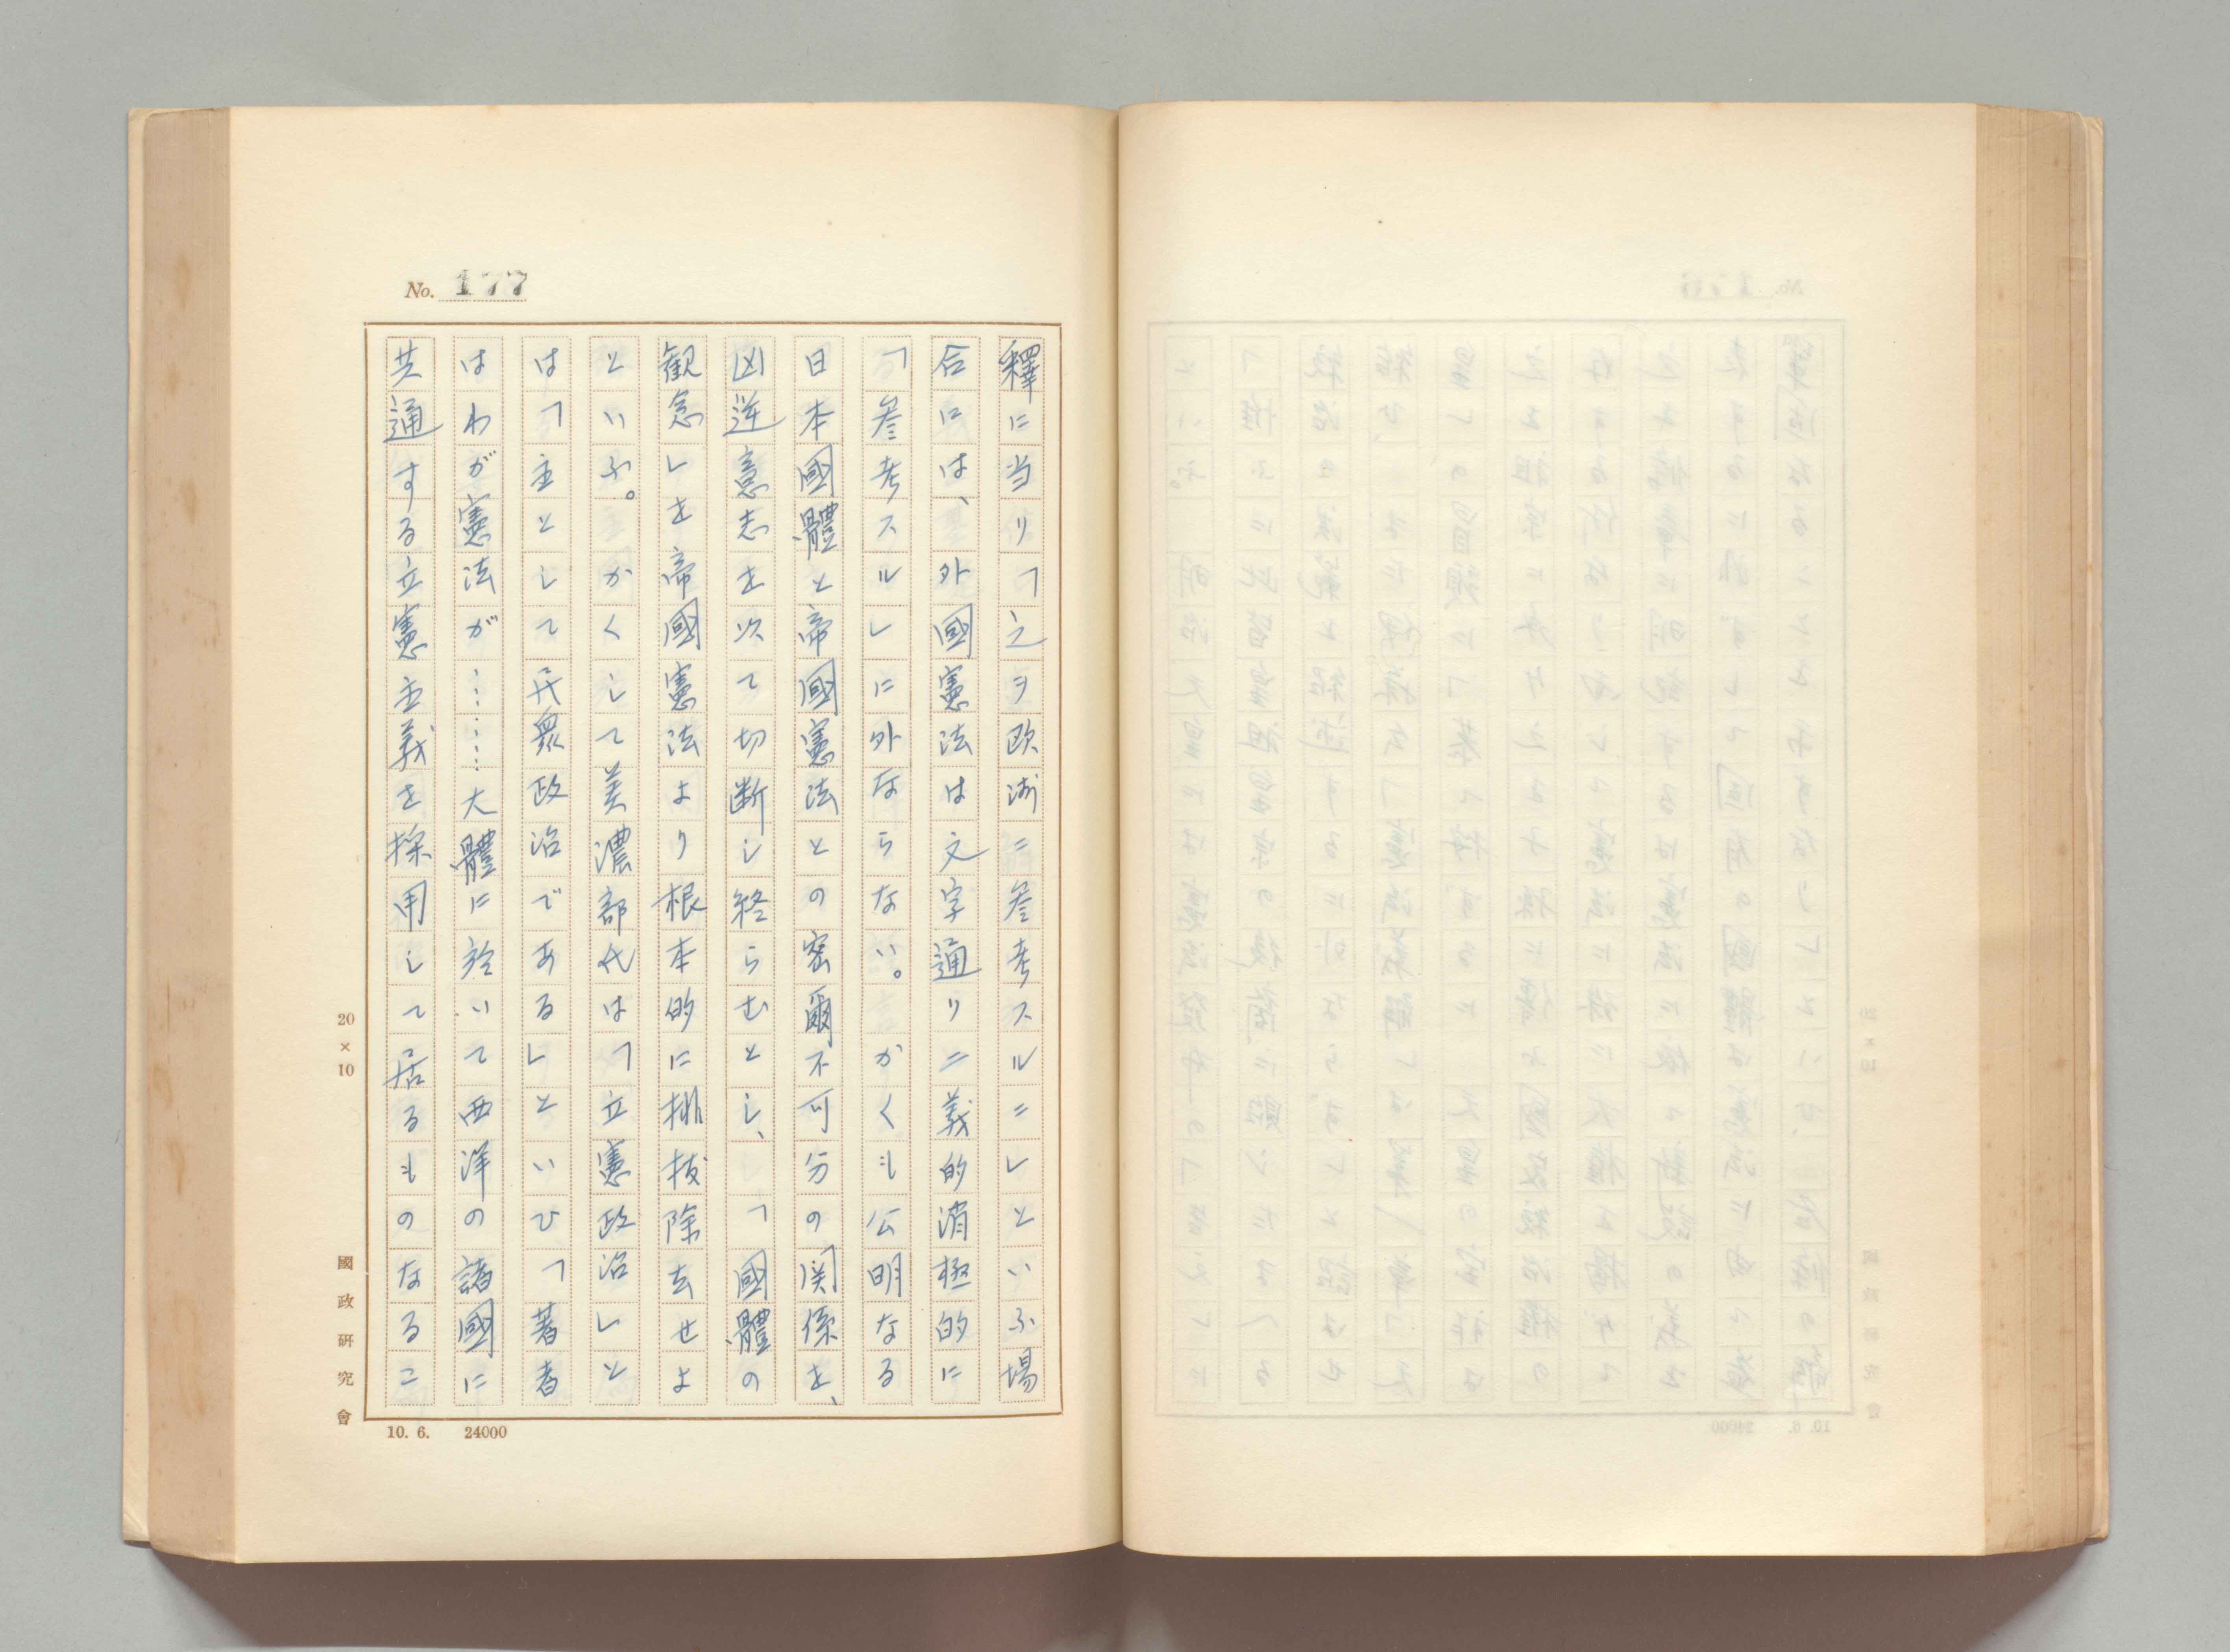 No. 177
釋に当り「之ヲ欧洲ニ参考スルニ」といふ場
合には、外國憲法は文字通り二義的消極的に
「参考スル」に外ならない。かくも公明なる
日本國體と帝國憲法との密爾不可分の関係を、
凶逆意志を以て切断し終らむとし、「國體の
観念」を帝國憲法より根本的に排拔除去せよ
といふ。かくして美濃部氏は「立憲政治」と
は「主として民衆政治である」といひ「著者
はわが憲法が……大體に於いて西洋の諸國に
共通する立憲主義を採用して居るものなるこ
20×10
國政研究會
10. 6. 24000